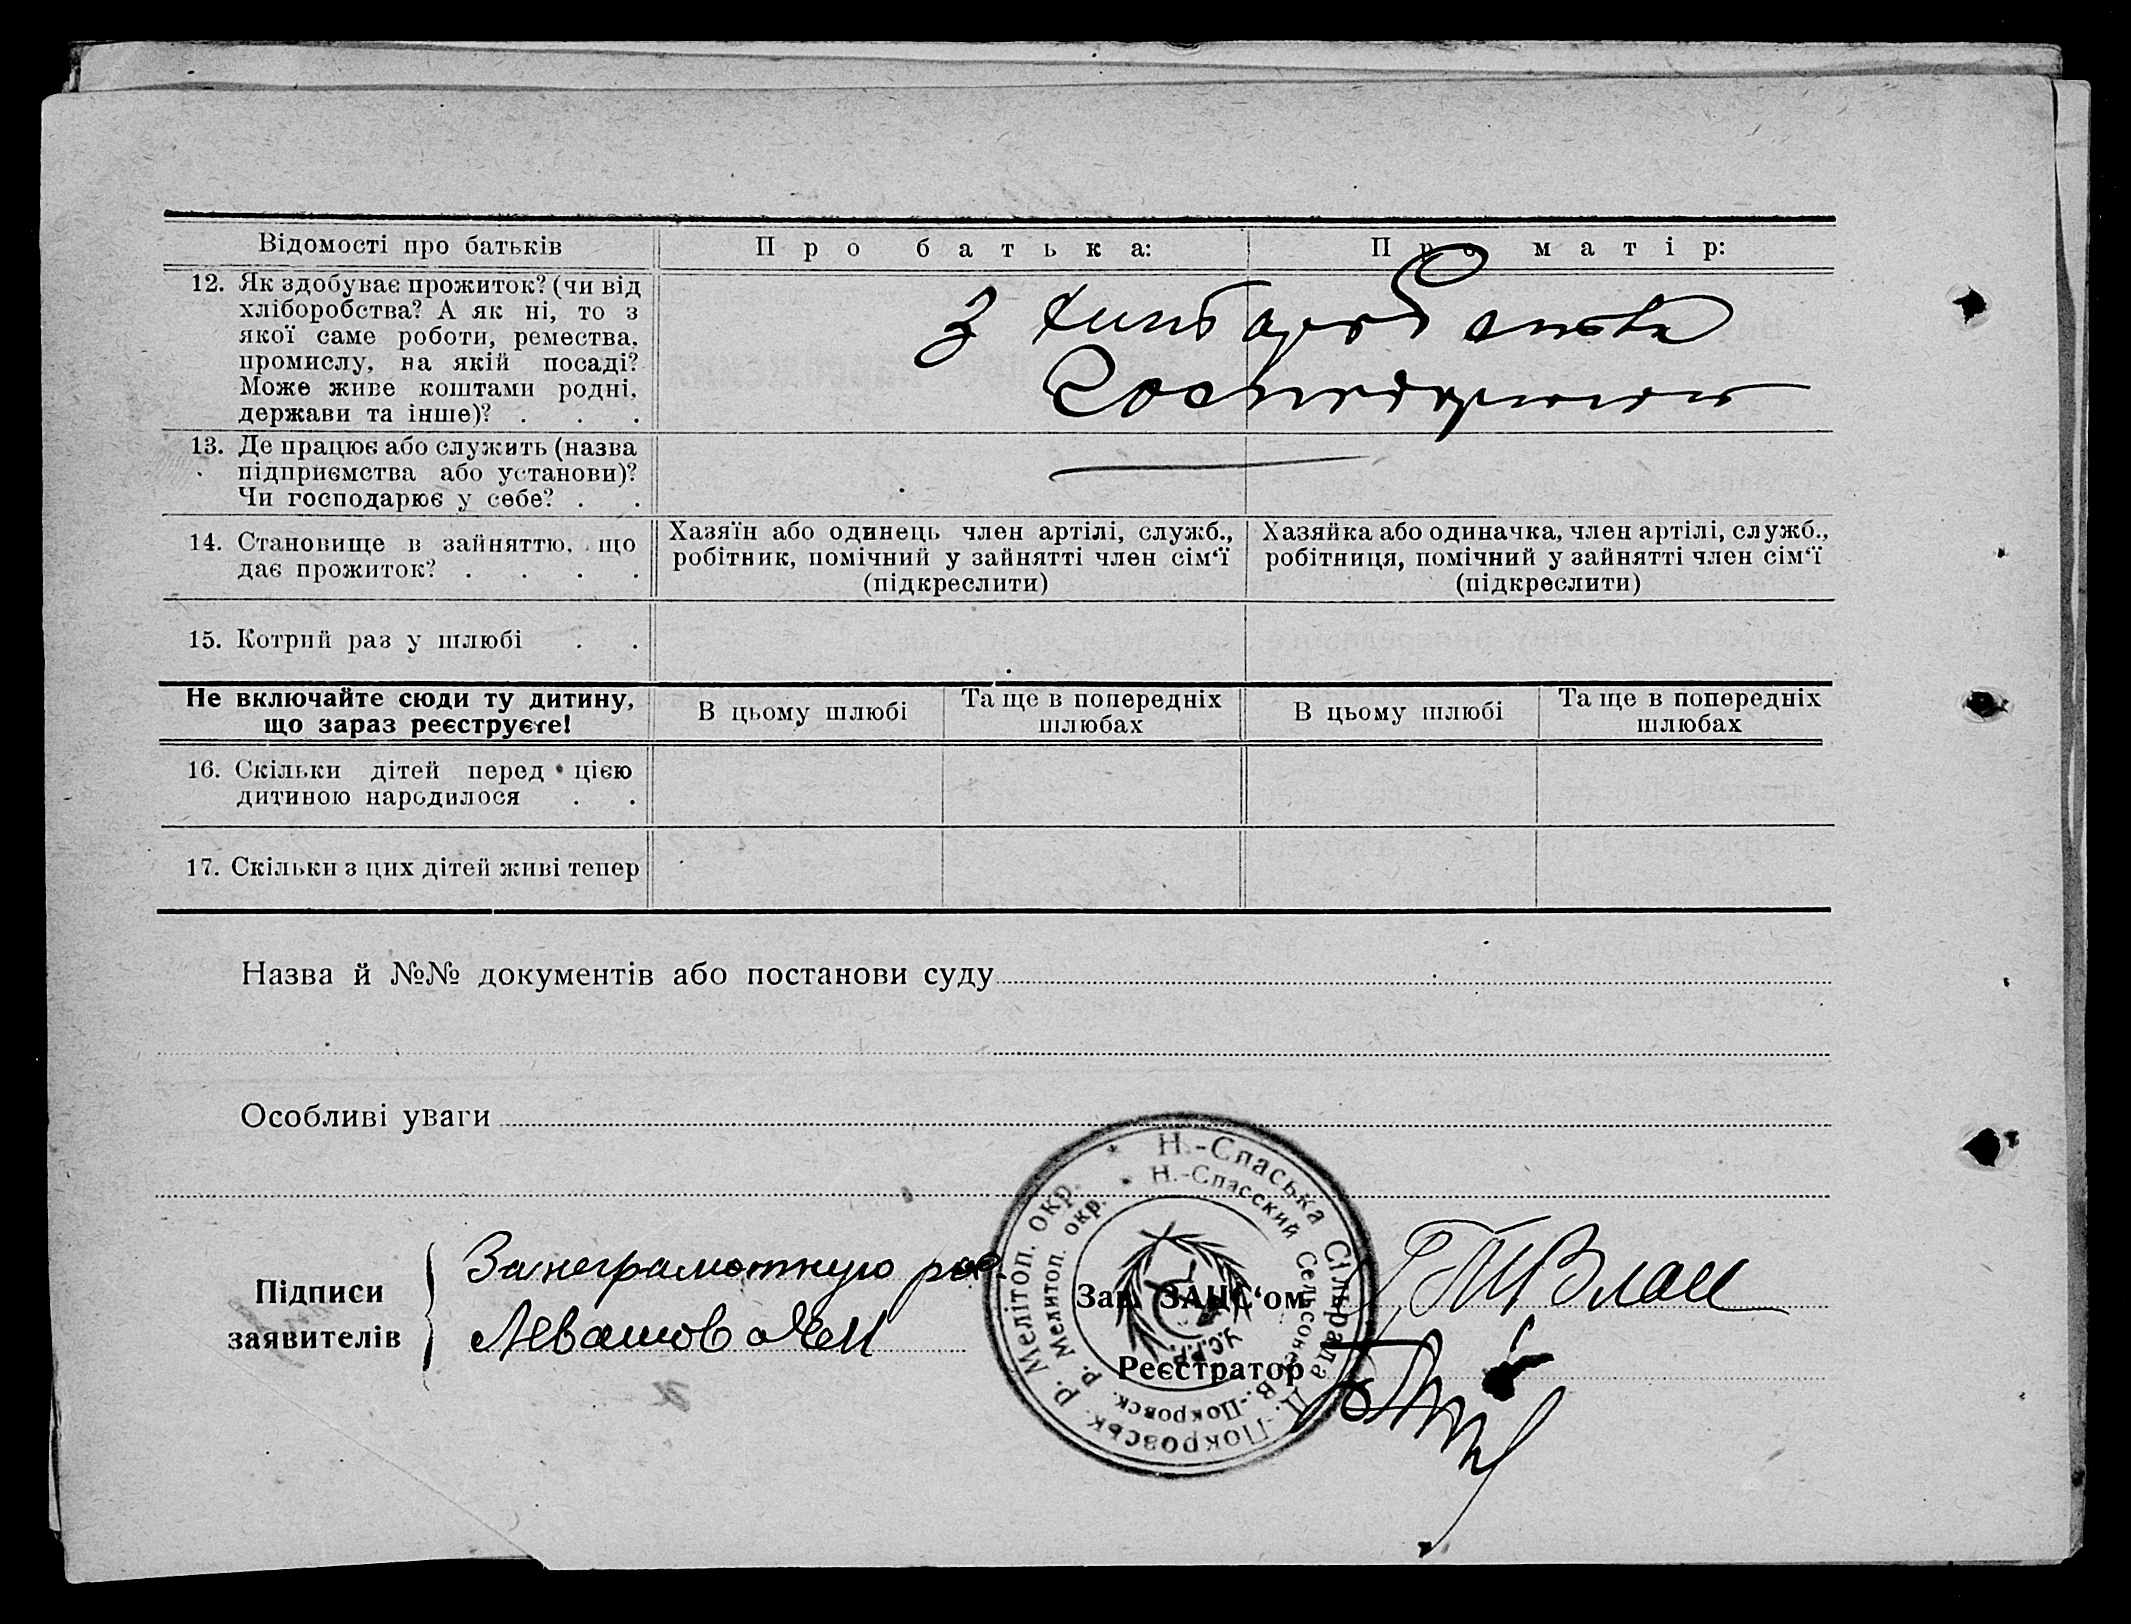 Відомості про батьків
Про батька:
Про матір:
12. Як здобуває прожиток? (чи від
хліборобства? А як ні, то з
якої саме роботи, ремества,
промислу, на якій посаді?
Може живе коштами родні,
держави та інше)? . . .
З хліборобства
13. Де працює або служить (назва
підприємства або установи)?
Чи господарює у себе? . .
14. Становище в зайняттю, що
дає прожиток? . . . .
Хазяїн або одинець член артілі, служб.,
робітник, помічний у зайнятті член сім‘ї
(підкреслити)
Хазяйка або одиначка, член артілі, служб.,
робітниця, помічний у зайнятті член сім‘ї
(підкреслити)
15. Котрий раз у шлюбі . .
Не включайте сюди ту дитину,
що зараз реєструєте!
В цьому шлюбі
Та ще в попередніх
шлюбах
В цьому шлюбі
Та ще в попередніх
шлюбах
16. Скільки дітей перед цією
дитиною народилося . .
17. Скільки з цих дітей живі тепер
Назва й №№ документів або постанови суду
Особливі уваги
Підписи
заявителів
За неграмотную рос.
Зав. ЗАЦС‘ом
Реєстратор
* Н.-Спаська Сільрада Д.-Покровськ. р. Мелітоп. окр.
* Н.-Спасский Сельсовет В.-Покровск. р. Мелитоп. окр.
У.С.Р.Р.